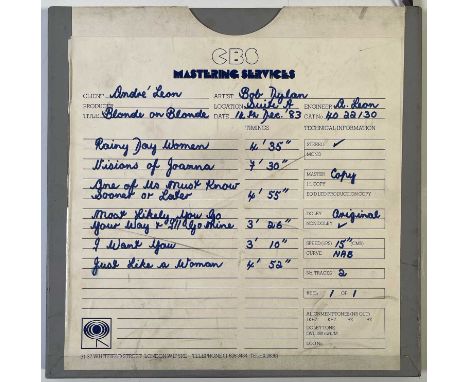 CBS
MASTERING SERVICES
CLIENT André Leon ARTIST Bob Dylan
PRODUCER LOCATION Suite A ENGINEER A. Leon
TITLE Blonde on Blonde DATE 12th Dec. '83 CAT No. 40 22130
TIMINGS TECHNICAL INFORMATION
Rainy Day Women 4' 35" STEREO ✓
MONO
Visions of Joanna 7' 30"
MASTER Copy
One of Us Must Know
Sooner or Later 4' 55"
DOLBY Original
Most Likely You Go NON DOLBY ✓
Your Way & I'll Go Mine 3' 26"
I Want You 3' 10" SPEED (IPS) 15" (CMS)
CURVE NAB
Just Like a Woman 4' 52"
No. TRACKS 2
REEL 1 OF 1
31-37 WHITFIELD STREET LONDON W1P 5RE TELEPHONE